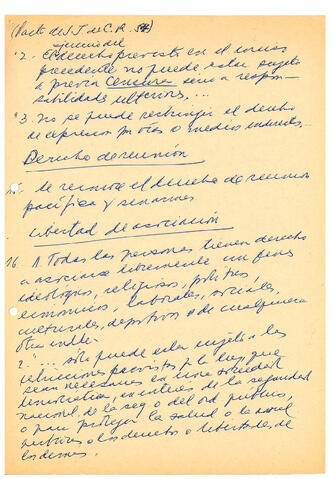 (Pacto de S.J. de C.R.
ejercicio del
"2. El derecho previsto en el inciso
precedente no puede estar sujeto
a previa censura sino a respon-
sabilidades ulteriores, ...
"3. No se puede restringir el derecho
de expresión por vías o medios indirectos...
Derecho de reunión
15. Se reconoce el derecho de reunión
pacífica y sin armas.
Libertad de asociación
16. 1. Todas las personas tienen derecho
a asociarse libremente con fines
ideológicos, religiosos, políticos,
económicos, laborales, sociales,
culturales, deportivos o de cualquiera
otra índole.
2. "... sólo puede estar sujeto a las
restricciones previstas p. la ley, que
sean necesarias en una sociedad
democrática, en interés de la seguridad
nacional, de la seg. o del ord. público,
o para proteger la salud o la moral
públicas o los derechos o libertades de
los demás.